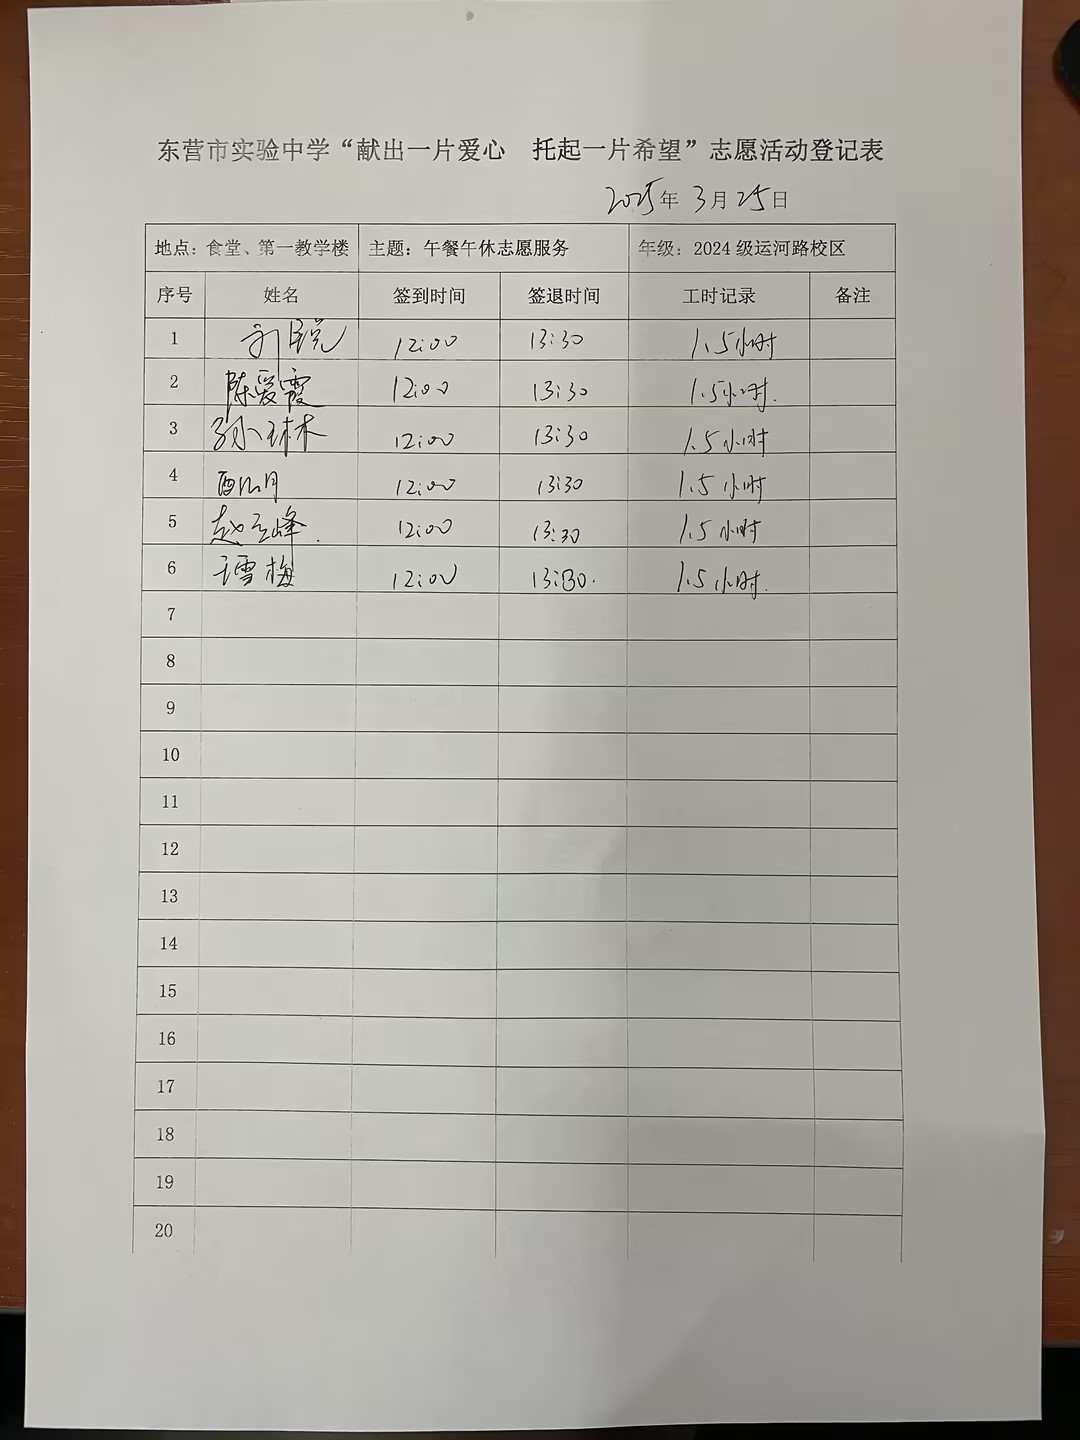 东营市实验中学“献出一片爱心 托起一片希望”志愿活动登记表
2025年 3月 25日
地点：食堂、第一教学楼 主题：午餐午休志愿服务 年级：2024 级运河路校区
序号 姓名 签到时间 签退时间 工时记录 备注
1 12:00 13:30 1.5小时
2 陈爱霞 12:00 13:30 1.5小时.
3 孙琳 12:00 13:30 1.5小时
4 12:00 13:30 1.5小时
5 赵立峰. 12:00 13:30 1.5小时
6 12:00 13:30. 1.5小时.
7
8
9
10
11
12
13
14
15
16
17
18
19
20